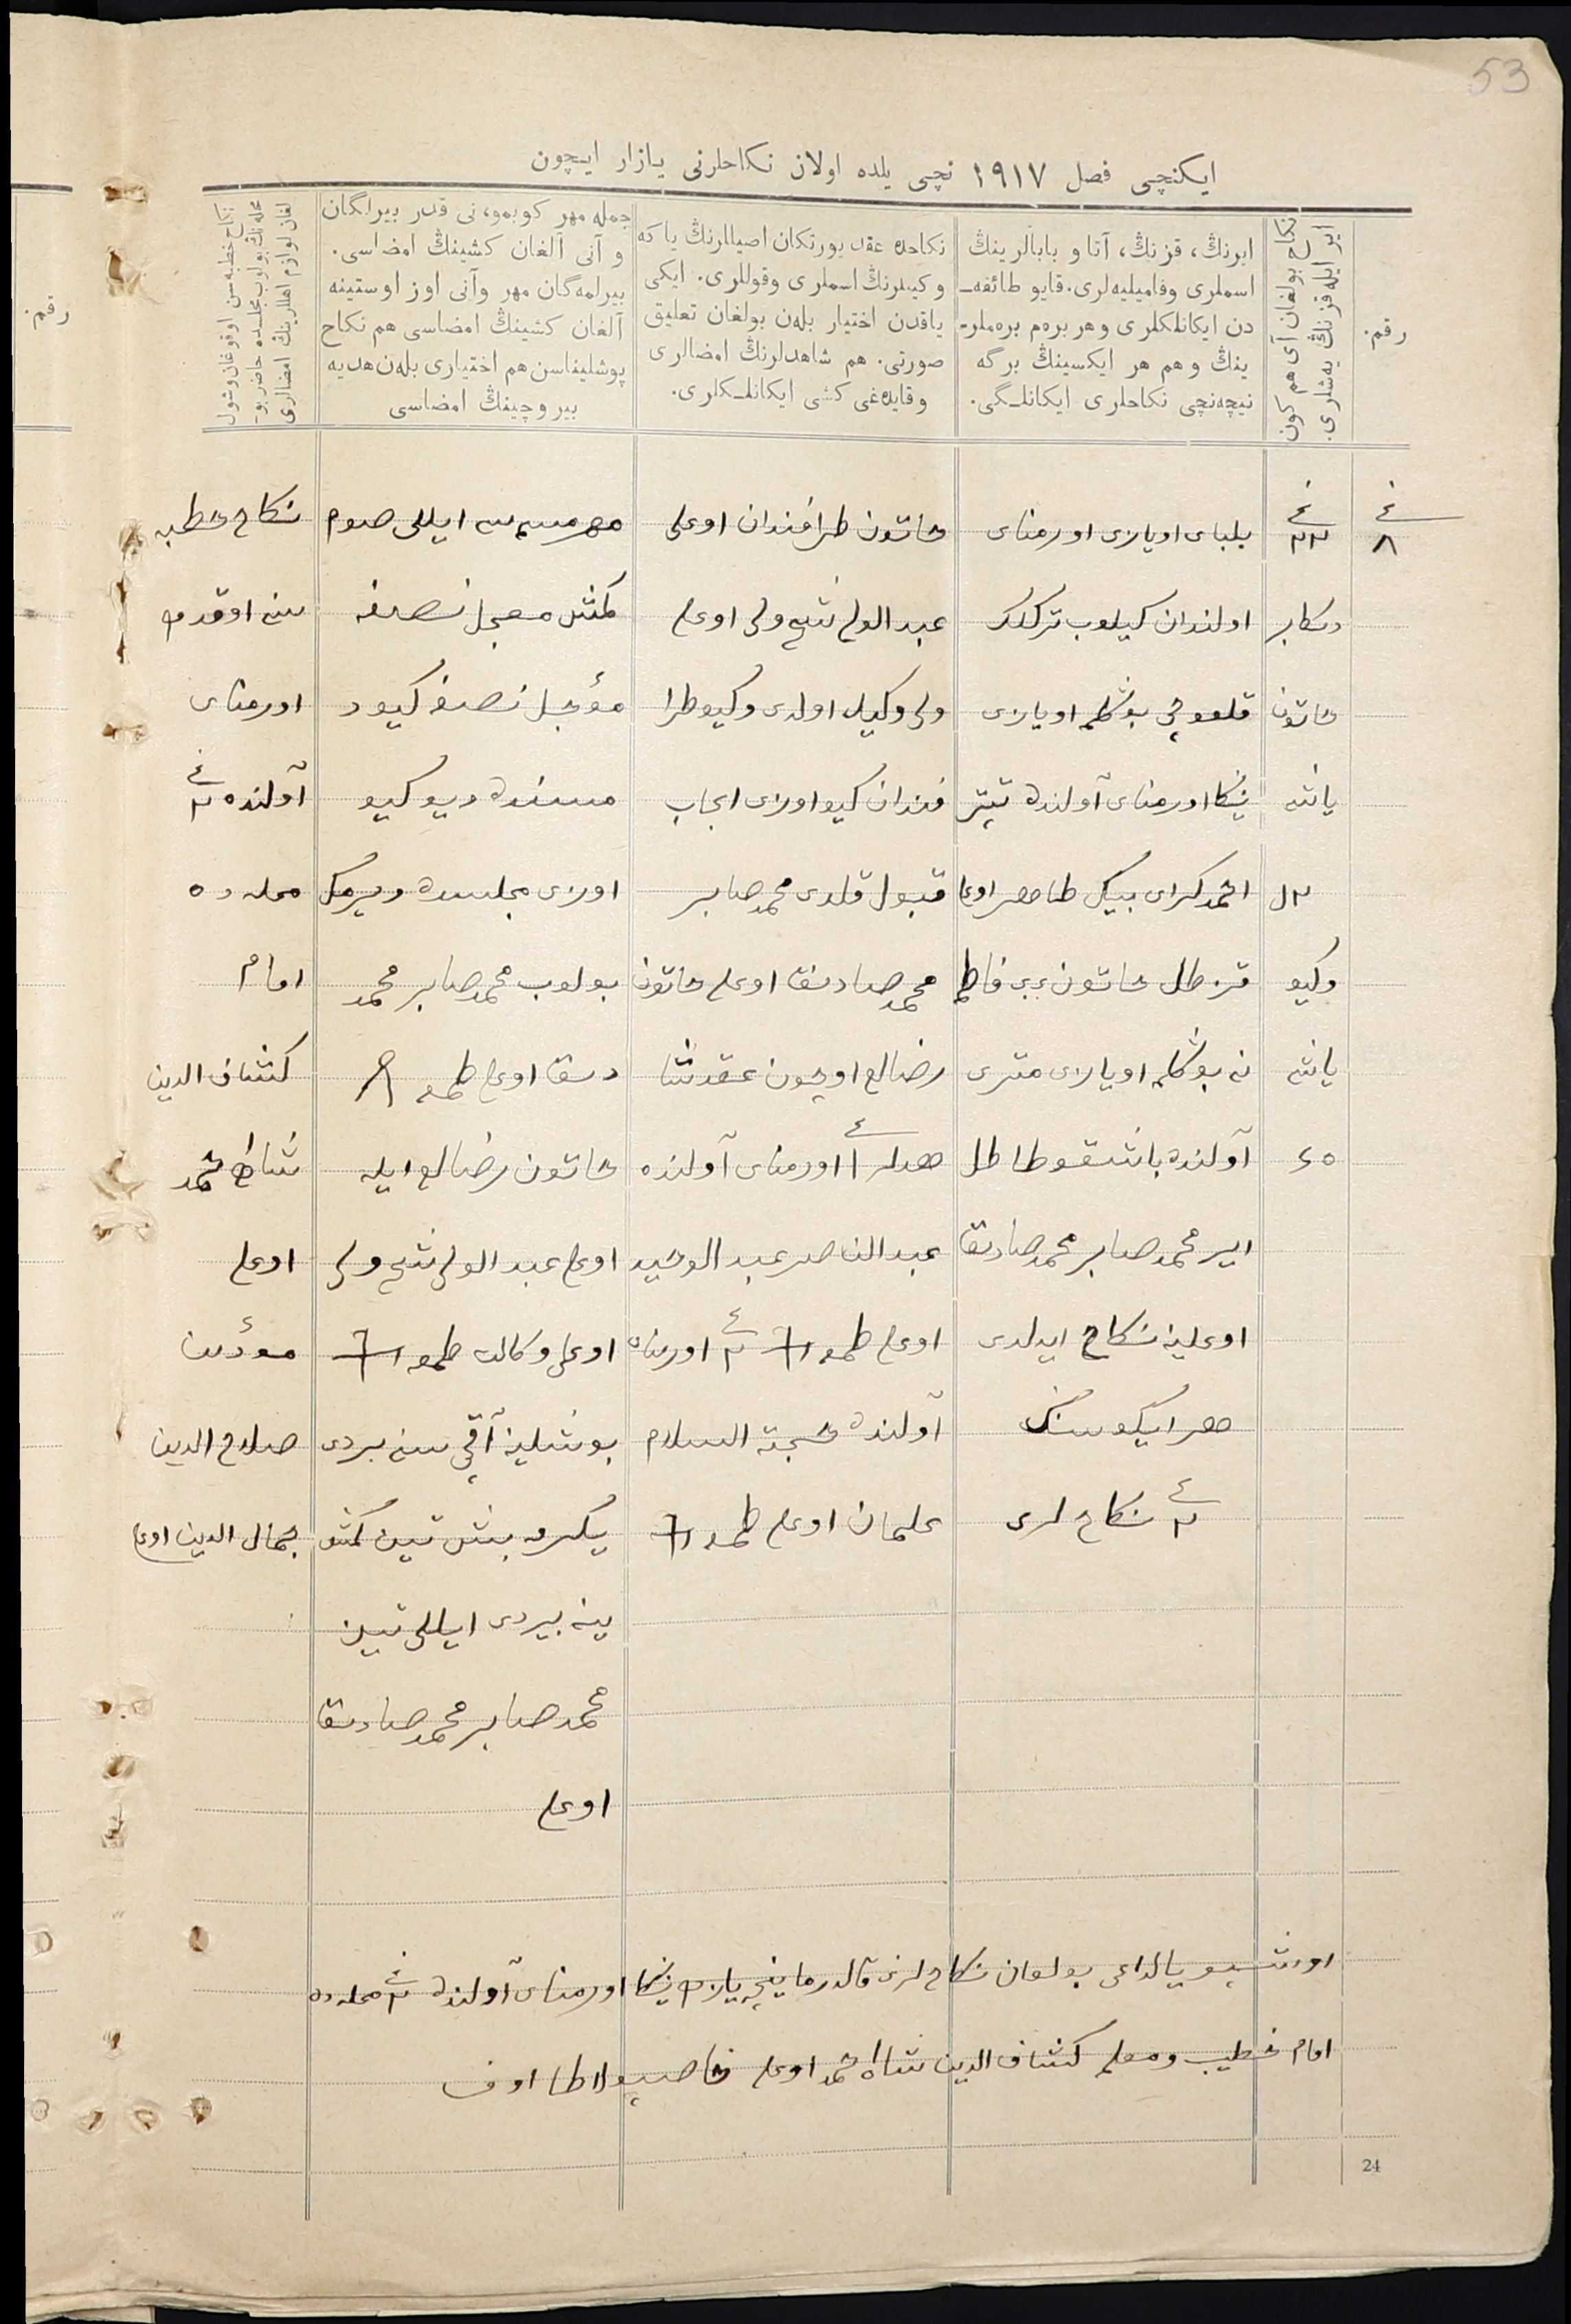 53
ایکنچی فصل ١٩١٧ نچی یلده اولان نکاحلرنی یازار ایچون
رقم.
نکاح بولغان آی هم کون
ایر ایله قزنڭ یه‌شلری.
ایرنڭ، قزنڭ، آتا و بابالرینڭ
اسملری وفامیلیه‌لری. قایو طائفه‌ـ
دن ایکانلکلری و هر برەم برەملرـ
ینڭ و هم هر ایکسینڭ برگه
نیچه‌نچی نکاحلری ایکانلـگی.
نکاحده عقد یورتکان اصیللرنڭ یا که
وکیلرنڭ اسملری وقوللری. ایکی
یاقدن اختیار بله‌ن بولغان تعلیق
صورتی. هم شاهدلرنڭ امضالری
وقایده‌غی کشی ایکانلـکلری.
جمله مهر کوبمو، نی قدر بیرلگان
و آنی آلغان کشینڭ امضاسی.
بیرلمه‌گان مهر وآنی اوز اوستینه
آلغان کشینڭ امضاسی هم نکاح
پوشلیناسن هم اختیاری بله‌ن هدیه
بیروچینڭ امضاسی
نکاح خطبه‌سن اوقوغان وشول
محله‌نڭ بولوب مجلسده حاضر بوـ
لغان لوازم اهللرینڭ امضالری
رقم.
٨
٢٢
دکابر
خاتون
یاشه
٢١
وکیو
یاشه
٤٥
بلبای اویازی اورمنای
اولندان کیلوب ترکلک
قلعوچی بوگلمه اویازی
ینکا اورمنای آولنده تبتر
احمدکرای بیک طاهر اوغلی
قز طل خاتون بی بی فاطم
نه بوگلمه اویازی متری
آولنده باشقوطا طل
ایر محمد صابر محمد صادیق
اوغلینه نکاح ایدلدی
هر ایکوسنک
٢ نکاح لری
خاتون طرافندان اوغلی
عبد الولی شیخ ولی اوغلی
ولی وکیل اولدی وکیو طرا
فندان کیو اوزی ایجاب
قبول قلدی محمد صابر
محمد صادیق اوغلی خاتون
رضالغ اوچون عقد شا
هدلر ١ اورمنای آولنده
عبد الناصر عبد الوحید
اوغلی طمغه ٢ اورمنای
آولنده حجة السلام
علمان اوغلی طمغه
مهر مسمی سی ایللی صوم
کمش معجل نصفه
مؤجل نصف کیود
مسنده دیو کیو
اوزی مجلسده ویرمک
بولوب محمد صابر محمد
دیق اوغلی طمغه
خاتون رضالغ ایله
اوغلی عبد الولی شیخ ولی
اوغلی وکالت طمغه
بوشلینه آقچه سنه بردی
یکرمه بش تین کمش
ینه بیردی ایللی تین
محمد صابر محمد صادیق
اوغلی
نکاح خطبه
سنه اوقدم
اورمنای
آولنده ٢
محله ده
امام
کشاف الدین
شاه احمد
اوغلی
موذن
صلاح الدین
جمال الدین اوغلی
اوشبو یالداغی بولغان نکاح لرنی قالدرماینچه یازدم ینکا اورمنای آولنده ٢ محله ده
امام خطیب و معلم کشاف الدین شاه احمد اوغلی
24